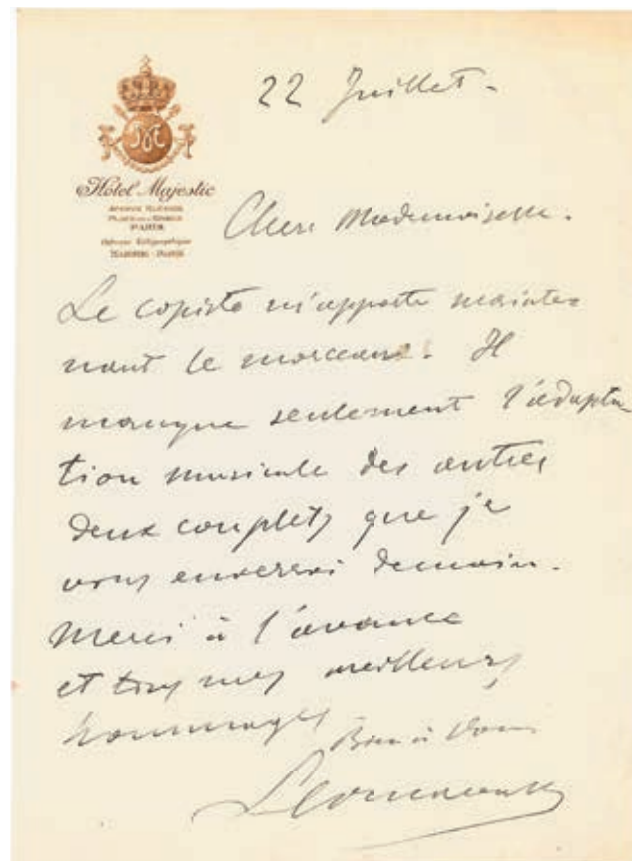 22 Juillet.
Hôtel Majestic
AVENUE KLÉBER
PARIS
Adresse Télégraphique
MAJESTIC - PARIS
Chere Mademoiselle.
Le copiste m'apporte mainte
nant le morceau. Il
manque seulement l'adapta
tion musicale des autres
deux couplets que je
vous enverrai demain.
Merci à l'avance
et tous mes meilleurs
hommages
Bien à vous